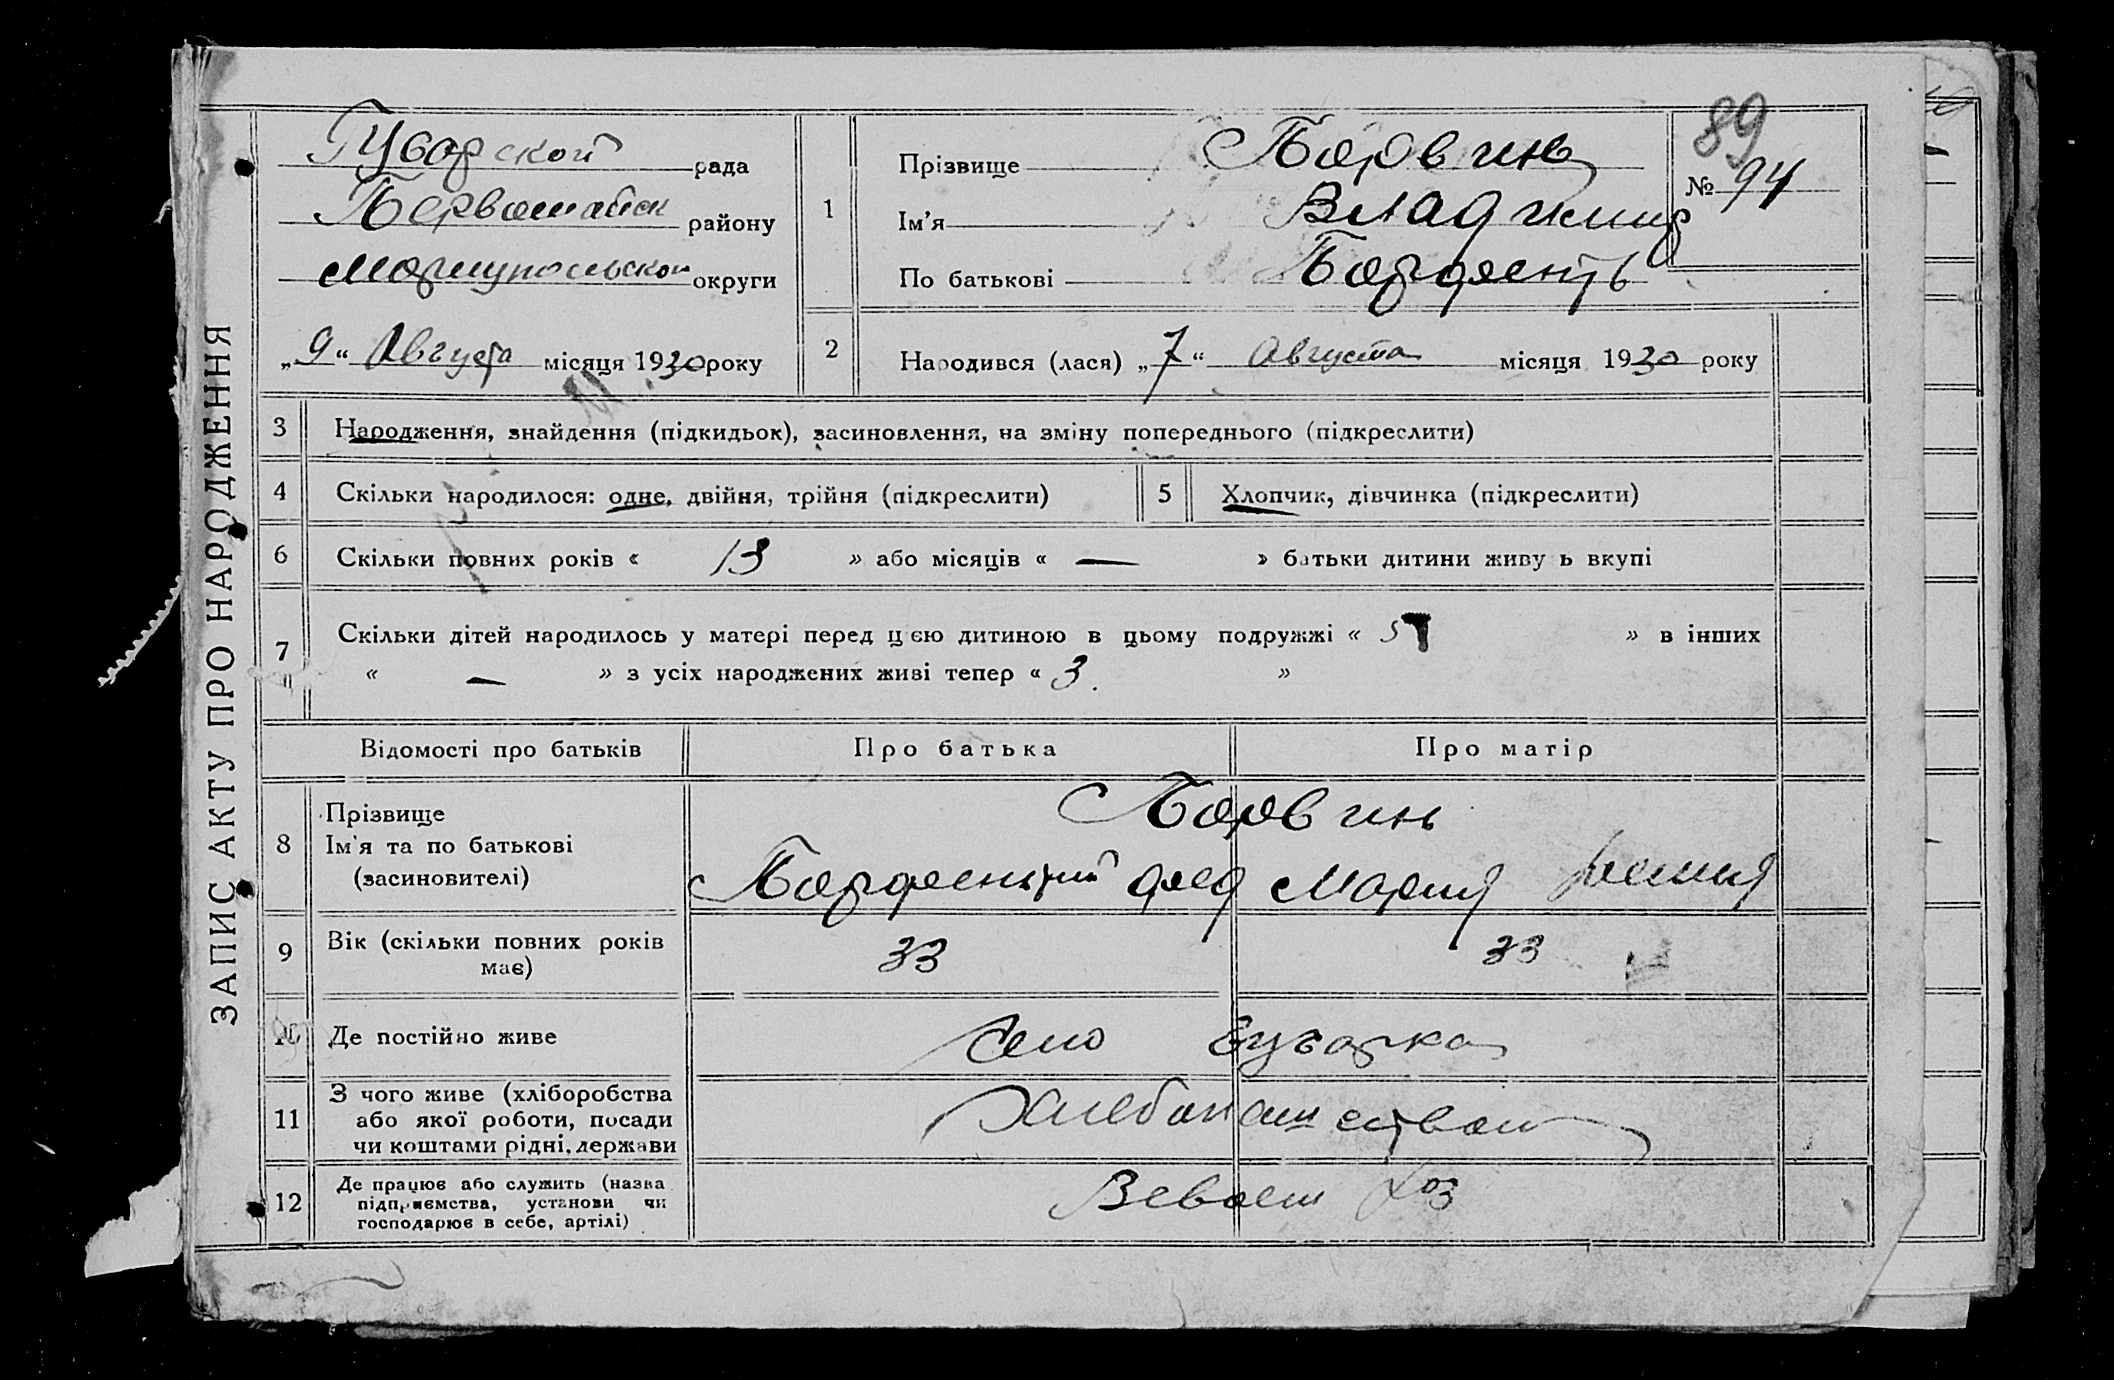 ЗАПИС АКТУ ПРО НАРОДЖЕННЯ
89
рада
Первомайск району
Мариупольской округи
„9“ Августа місяця 1930 року
1
Прізвище
Ім'я Владимир
По батькові
№ 94
2
Народився (лася) „7“ Августа місяця 1930 року
3 Народження, знайдення (підкидьок), засиновлення, на зміну попереднього (підкреслити)
4 Скільки народилося: одне, двійня, трійня (підкреслити)
5 Хлопчик, дівчинка (підкреслити)
6 Скільки повних років « 13 » або місяців « — » батьки дитини живу ь вкупі
7 Скільки дітей народилось у матері перед цією дитиною в цьому подружжі « 5 » в інших
« — » з усіх народжених живі тепер « 3 »
Відомості про батьків
Про батька
Про матір
8 Прізвище
Ім'я та по батькові
(засиновителі)
Мария
9 Вік (скільки повних років має)
33
33
10 Де постійно живе
Село
11 З чого живе (хліборобства
або якої роботи, посади
чи коштами рідні, держави
12 Де працює або служить (назва
підприємства, установи чи
господарює в себе, артілі)
Всвоем хоз